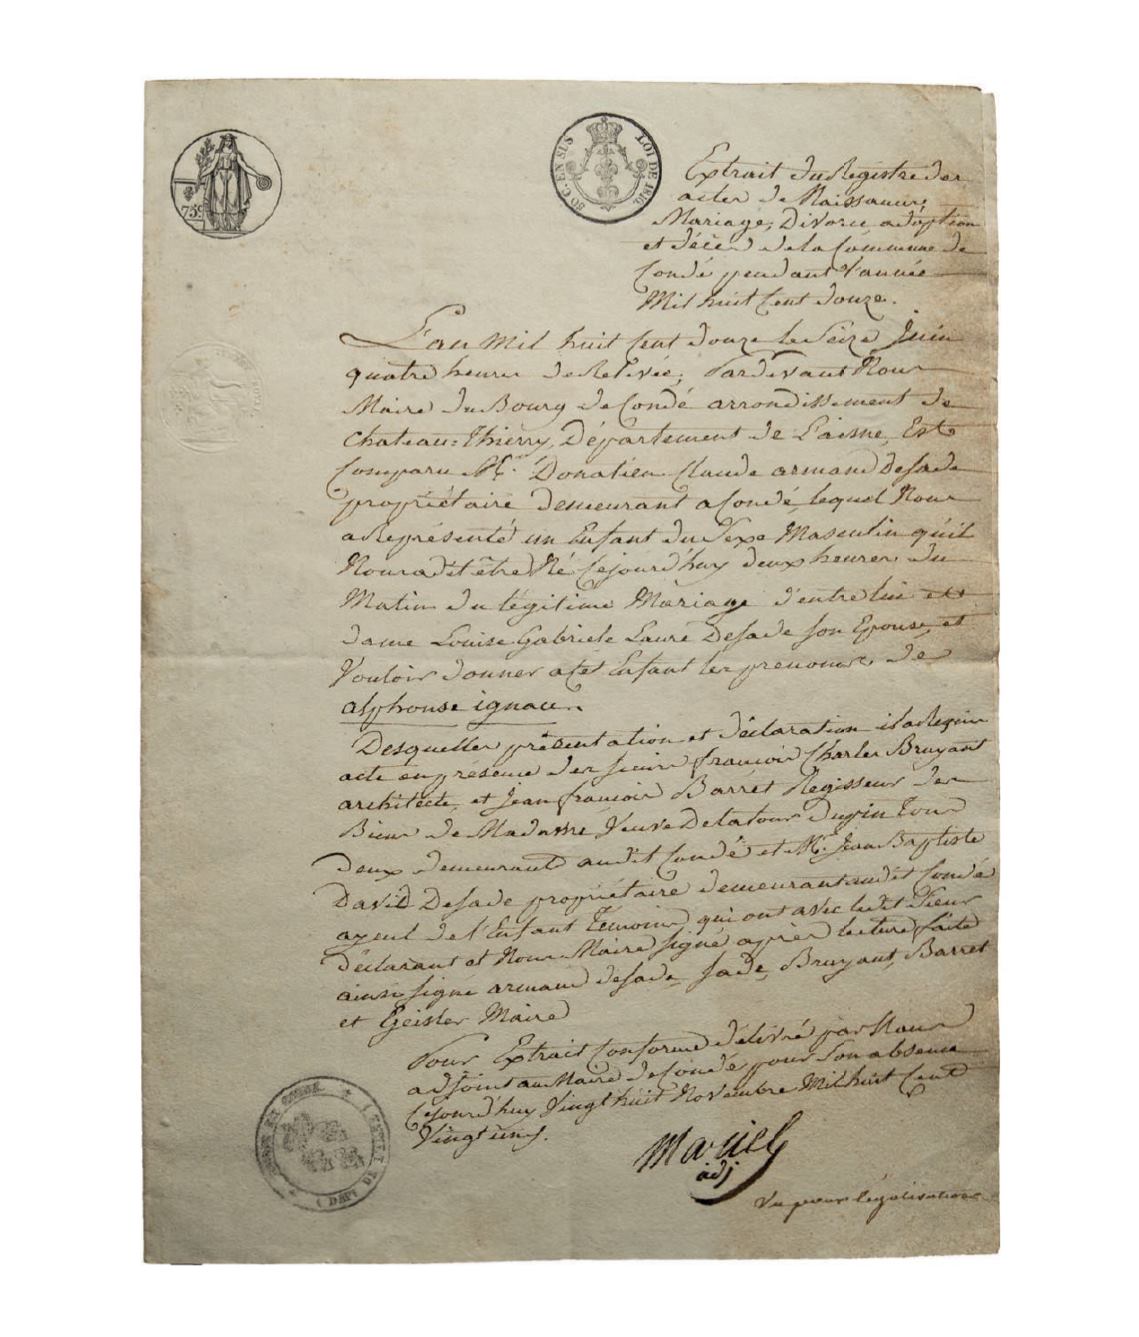 75c
80 C. EN SUS
LOI DE 1816.
Extrait du Régistre des
actes de Naissance,
Mariage, Divorce adoption
et décès de la Commune de
Condé pendant l'année
Mil huit Cent douze.
L'an Mil huit Cent douze le Seize Juin
quatre heures de Relevée, Pardevant Nous
Maire du Bourg de Condé arrondissement de
Chateau=Thierry, Département de L'aisne, Est
Comparu Mr. Donatien Claude armand Desade
propriétaire demeurant a Condé, lequel Nous
a Représenté un Enfant du Sexe Masculin qu'il
Nous a dit être Né Cejourd'huy deux heures du
Matin du légitime Mariage d'entre lui et
dame Louise Gabriele Laure Desade son Epouse, et
Vouloir donner a cet Enfant les prenoms de
alphonse ignace.
Desquelles présentation et déclaration il a Requis
acte en présence des sieurs françois Charles Bruyant
architecte, et Jean françois Barret Regisseur des
Biens de Madame Veuve Delatour Dupin Tous
deux demeurant audit Condé et Mr. Jean Baptiste
David Desade propriétaire demeurant audit Condé
ayeul de l'Enfant Temoins qui ont avec ledit Sieur
déclarant et Nous Maire signé après lecture faite
ainsi signé armand desade, Sade, Bruyant, Barret
et Maire
Pour Extrait Conforme délivré par Nous
adjoint au Maire de Condé pour Son absence
Cejourd'huy Vingt huit Novembre Mil huit Cent
Vingt un.
adj
Vu pour légalisation